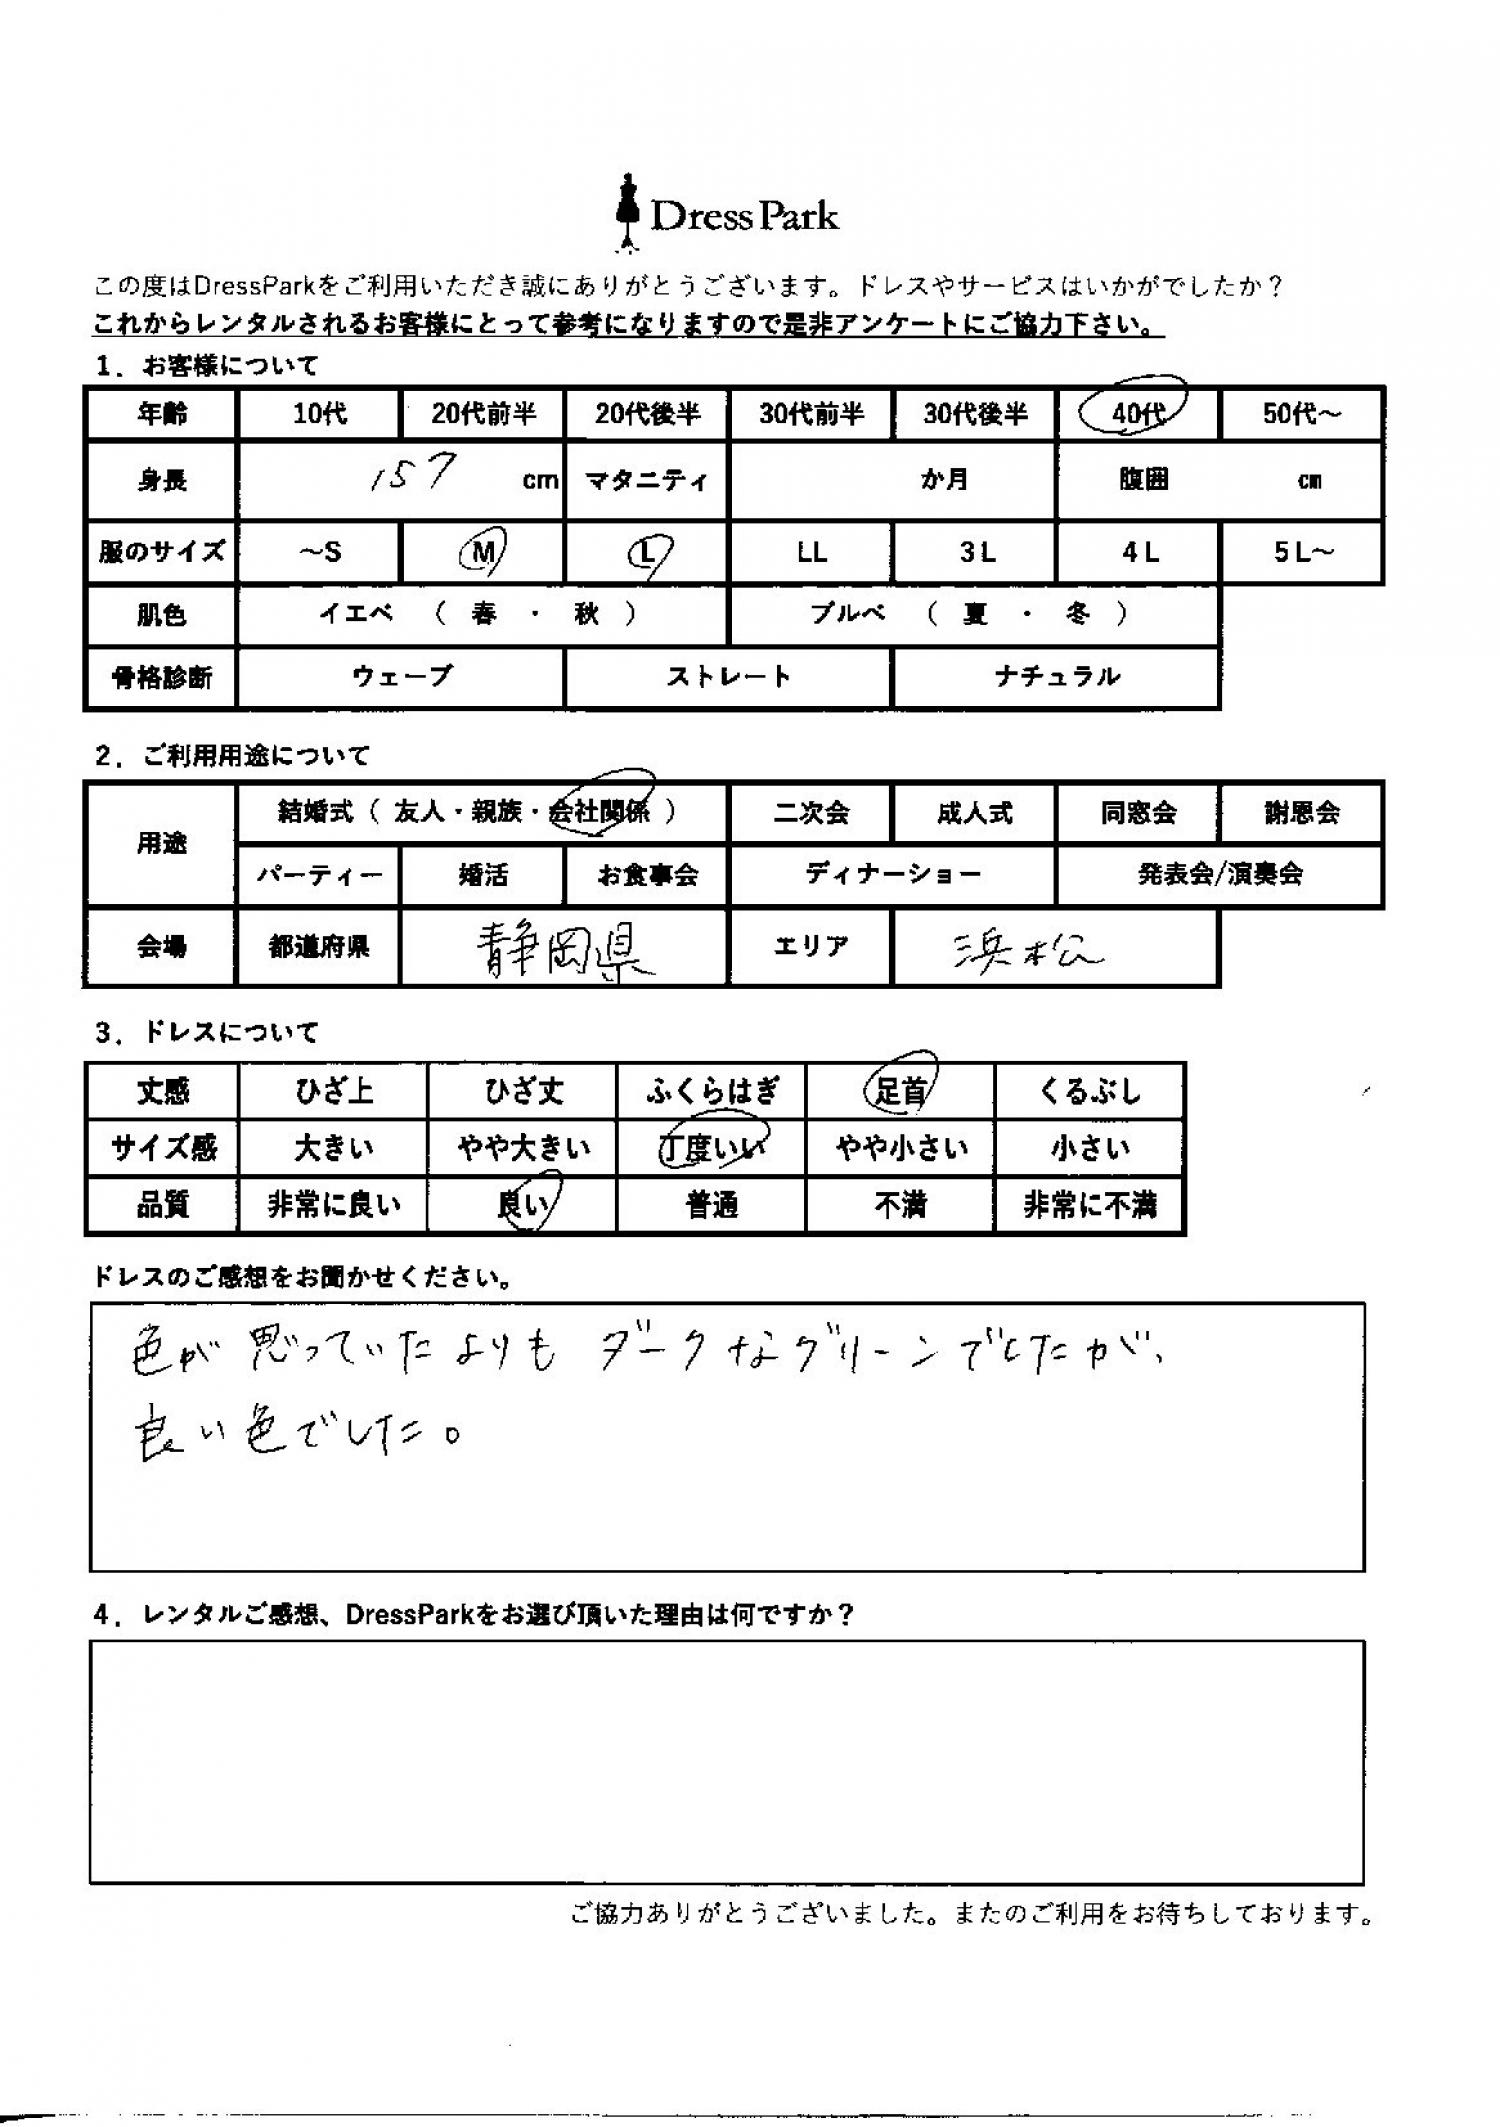 Dress Park
この度はDressParkをご利用いただき誠にありがとうございます。ドレスやサービスはいかがでしたか？
これからレンタルされるお客様にとって参考になりますので是非アンケートにご協力下さい。
1．お客様について
年齢 10代 20代前半 20代後半 30代前半 30代後半 40代 50代～
身長 157 cm マタニティ か月 腹囲 cm
服のサイズ ～S M L LL 3L 4L 5L～
肌色 イエベ （ 春 ・ 秋 ） ブルベ （ 夏 ・ 冬 ）
骨格診断 ウェーブ ストレート ナチュラル
2．ご利用用途について
用途 結婚式（ 友人・親族・会社関係 ） 二次会 成人式 同窓会 謝恩会
パーティー 婚活 お食事会 ディナーショー 発表会/演奏会
会場 都道府県 静岡県 エリア 浜松
3．ドレスについて
丈感 ひざ上 ひざ丈 ふくらはぎ 足首 くるぶし
サイズ感 大きい やや大きい 丁度いい やや小さい 小さい
品質 非常に良い 良い 普通 不満 非常に不満
ドレスのご感想をお聞かせください。
色が思っていたよりもダークなグリーンでしたが、
良い色でした。
4．レンタルご感想、DressParkをお選び頂いた理由は何ですか？
ご協力ありがとうございました。またのご利用をお待ちしております。